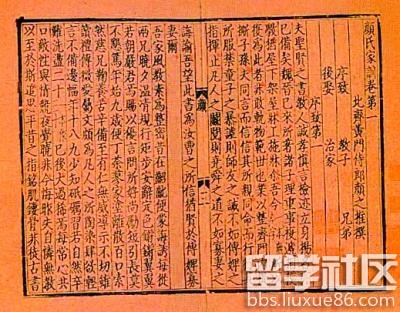 顏氏家訓卷第一
北齊黃門侍郎顏之推撰
序致 教子 兄弟
後娶 治家
序致第一
夫聖賢之書教人誠孝慎言檢迹立身揚名
已備矣魏晉已來所著諸子理重事複遞相
斅猶屋下架屋牀上施牀爾吾今所以復
為此者非敢軌物範世也業以整齊門內提
撕子孫夫同言而信信其所親同命而行
所服禁童子之暴謔則師友之誡不如傅婢之
指揮止凡人之鬭鬩則堯舜之道不如寡妻之
誨諭吾望此書為汝曹之所信猶賢於傅婢寡
妻爾
吾家風教素為整密昔在齠齔便蒙誨誘每從
兩兄曉夕溫凊規行矩步安辭定色鏘鏘翼翼
若朝嚴君焉賜以優言問所好尚勵短引長莫
不懇篤年始九歲便丁荼蓼家塗離散百口索
然慈兄鞠養苦辛備至有仁無威導示不切雖
讀禮傳微愛屬文頗為凡人之所陶染肆欲輕
言不備邊幅年十八九少知砥礪習若自然卒
難洗盪二十已後大過稀焉每常心共
口敵性與情競夜覺曉非今悔昨失自憐無教
以至於斯追思平昔之指銘肌鏤骨非徒古書
留学社区
bbs.liuxue86.com